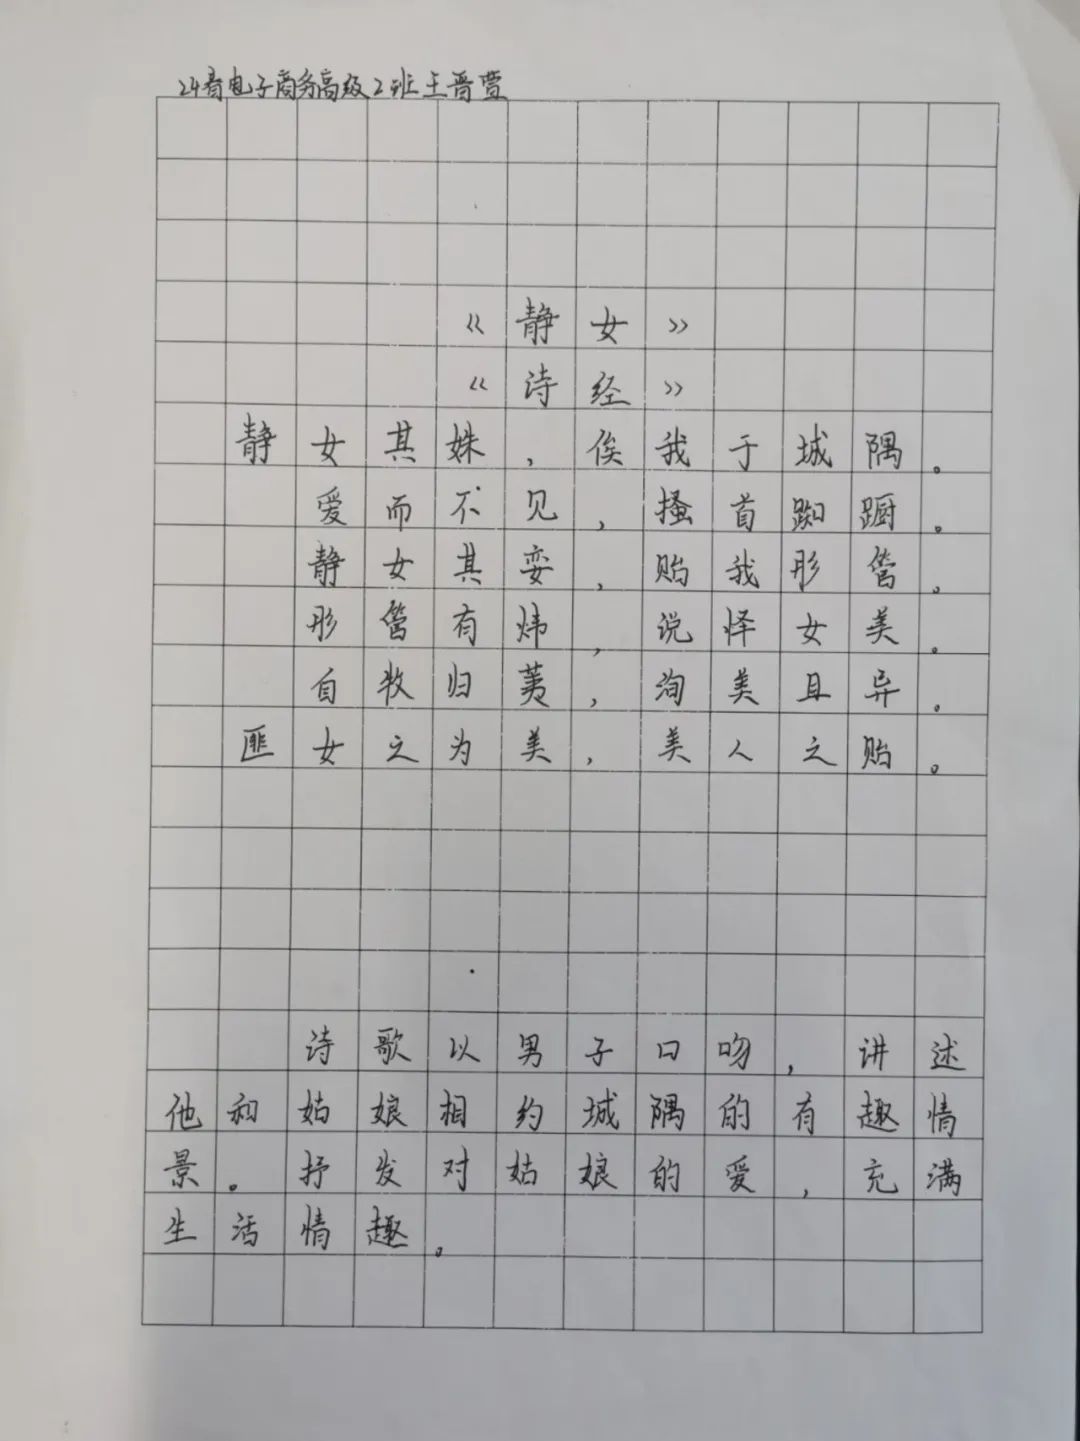 24春电子商务高级2班王晋萱
《静女》
《诗经》
静女其姝,俟我于城隅。
爱而不见,搔首踟蹰。
静女其娈,贻我彤管。
彤管有炜,说怿女美。
自牧归荑,洵美且异。
匪女之为美,美人之贻。
诗歌以男子口吻,讲述
他和姑娘相约城隅的有趣情
景。抒发对姑娘的爱,充满
生活情趣。